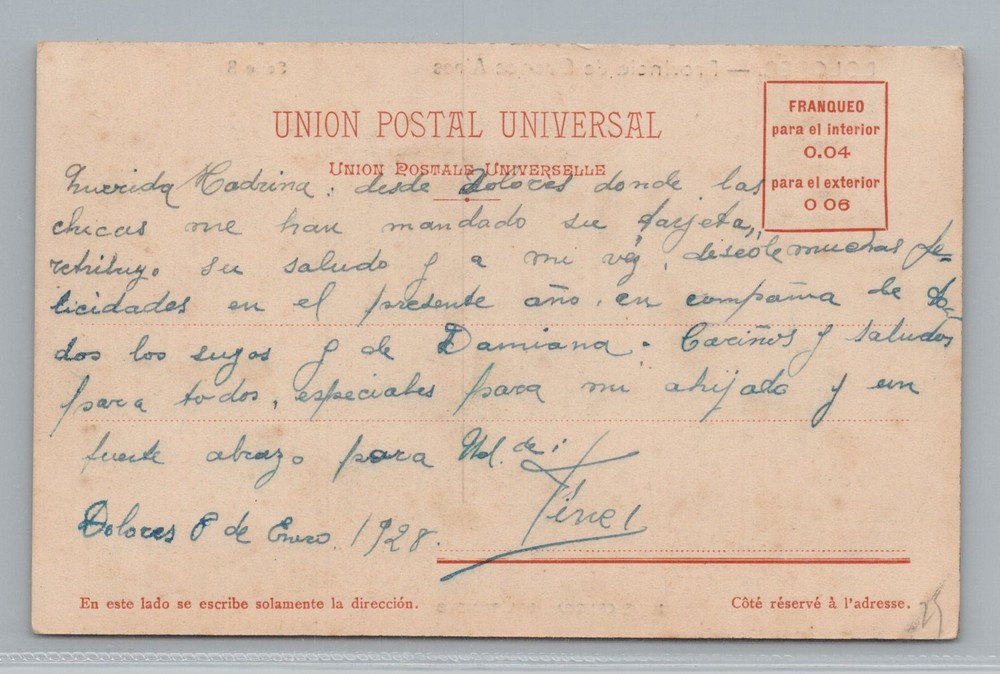 UNION POSTAL UNIVERSAL
UNION POSTALE UNIVERSELLE
FRANQUEO
para el interior
0.04
para el exterior
0 06
Querida Madrina: desde Dolores donde las
chicas me han mandado su tarjeta,
retribuyo su saludo y a mi vez, deseole muchas fe-
licidades en el presente año, en compañia de to-
dos los suyos y de Damiana. Cariños y saludos
para todos, especiales para mi ahijado y un
fuerte abrazo para Ud. de:
Dolores 8 de Enero 1928.
En este lado se escribe solamente la dirección.
Côté réservé à l'adresse.
25